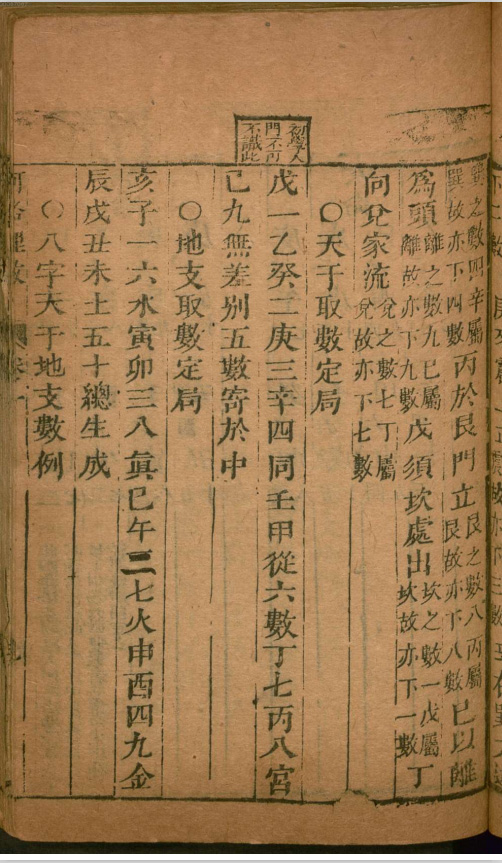 初學人
門不可
不識此
巽之數四辛屬
巽故亦下四數
丙於艮門立
艮之數八丙屬
艮故亦下八數
己以離
爲頭
離之數九己屬
離故亦下九數
戊須坎處出
坎之數一戊屬
坎故亦下一數
丁
向兌家流
兌之數七丁屬
兌故亦下七數
〇天干取數定局
戊一乙癸二庚三辛四同壬甲從六數丁七丙八宮
己九無差別五數寄於中
〇地支取數定局
亥子一六水寅卯三八真巳午二七火申酉四九金
辰戌丑未土五十總生成
〇八字天干地支數例